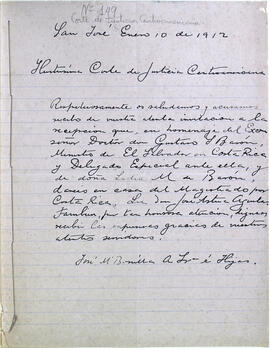 Nº 149
Corte de Justicia Centroamericana
San José Enero 10 de 1912
Ilustrísima Corte de Justicia Centroamericana
Respetuosamente os saludamos y acusamos
recibo de vuestra atenta invitación a la
recepción que, en homenaje del Exmo
señor Doctor don Gustavo S Barón,
Ministro de El Salvador en Costa Rica
y Delegado Especial ante ella, y
de doña M. de Barón,
dareis en casa del Magistrado por
Costa Rica, Lic Don José Astúa Aguilar
También, por tan honrosa atención, dignaos
recibir las expresivas gracias de vuestros
atentos servidores.
José Mª Bonilla A Sra é Hijas.